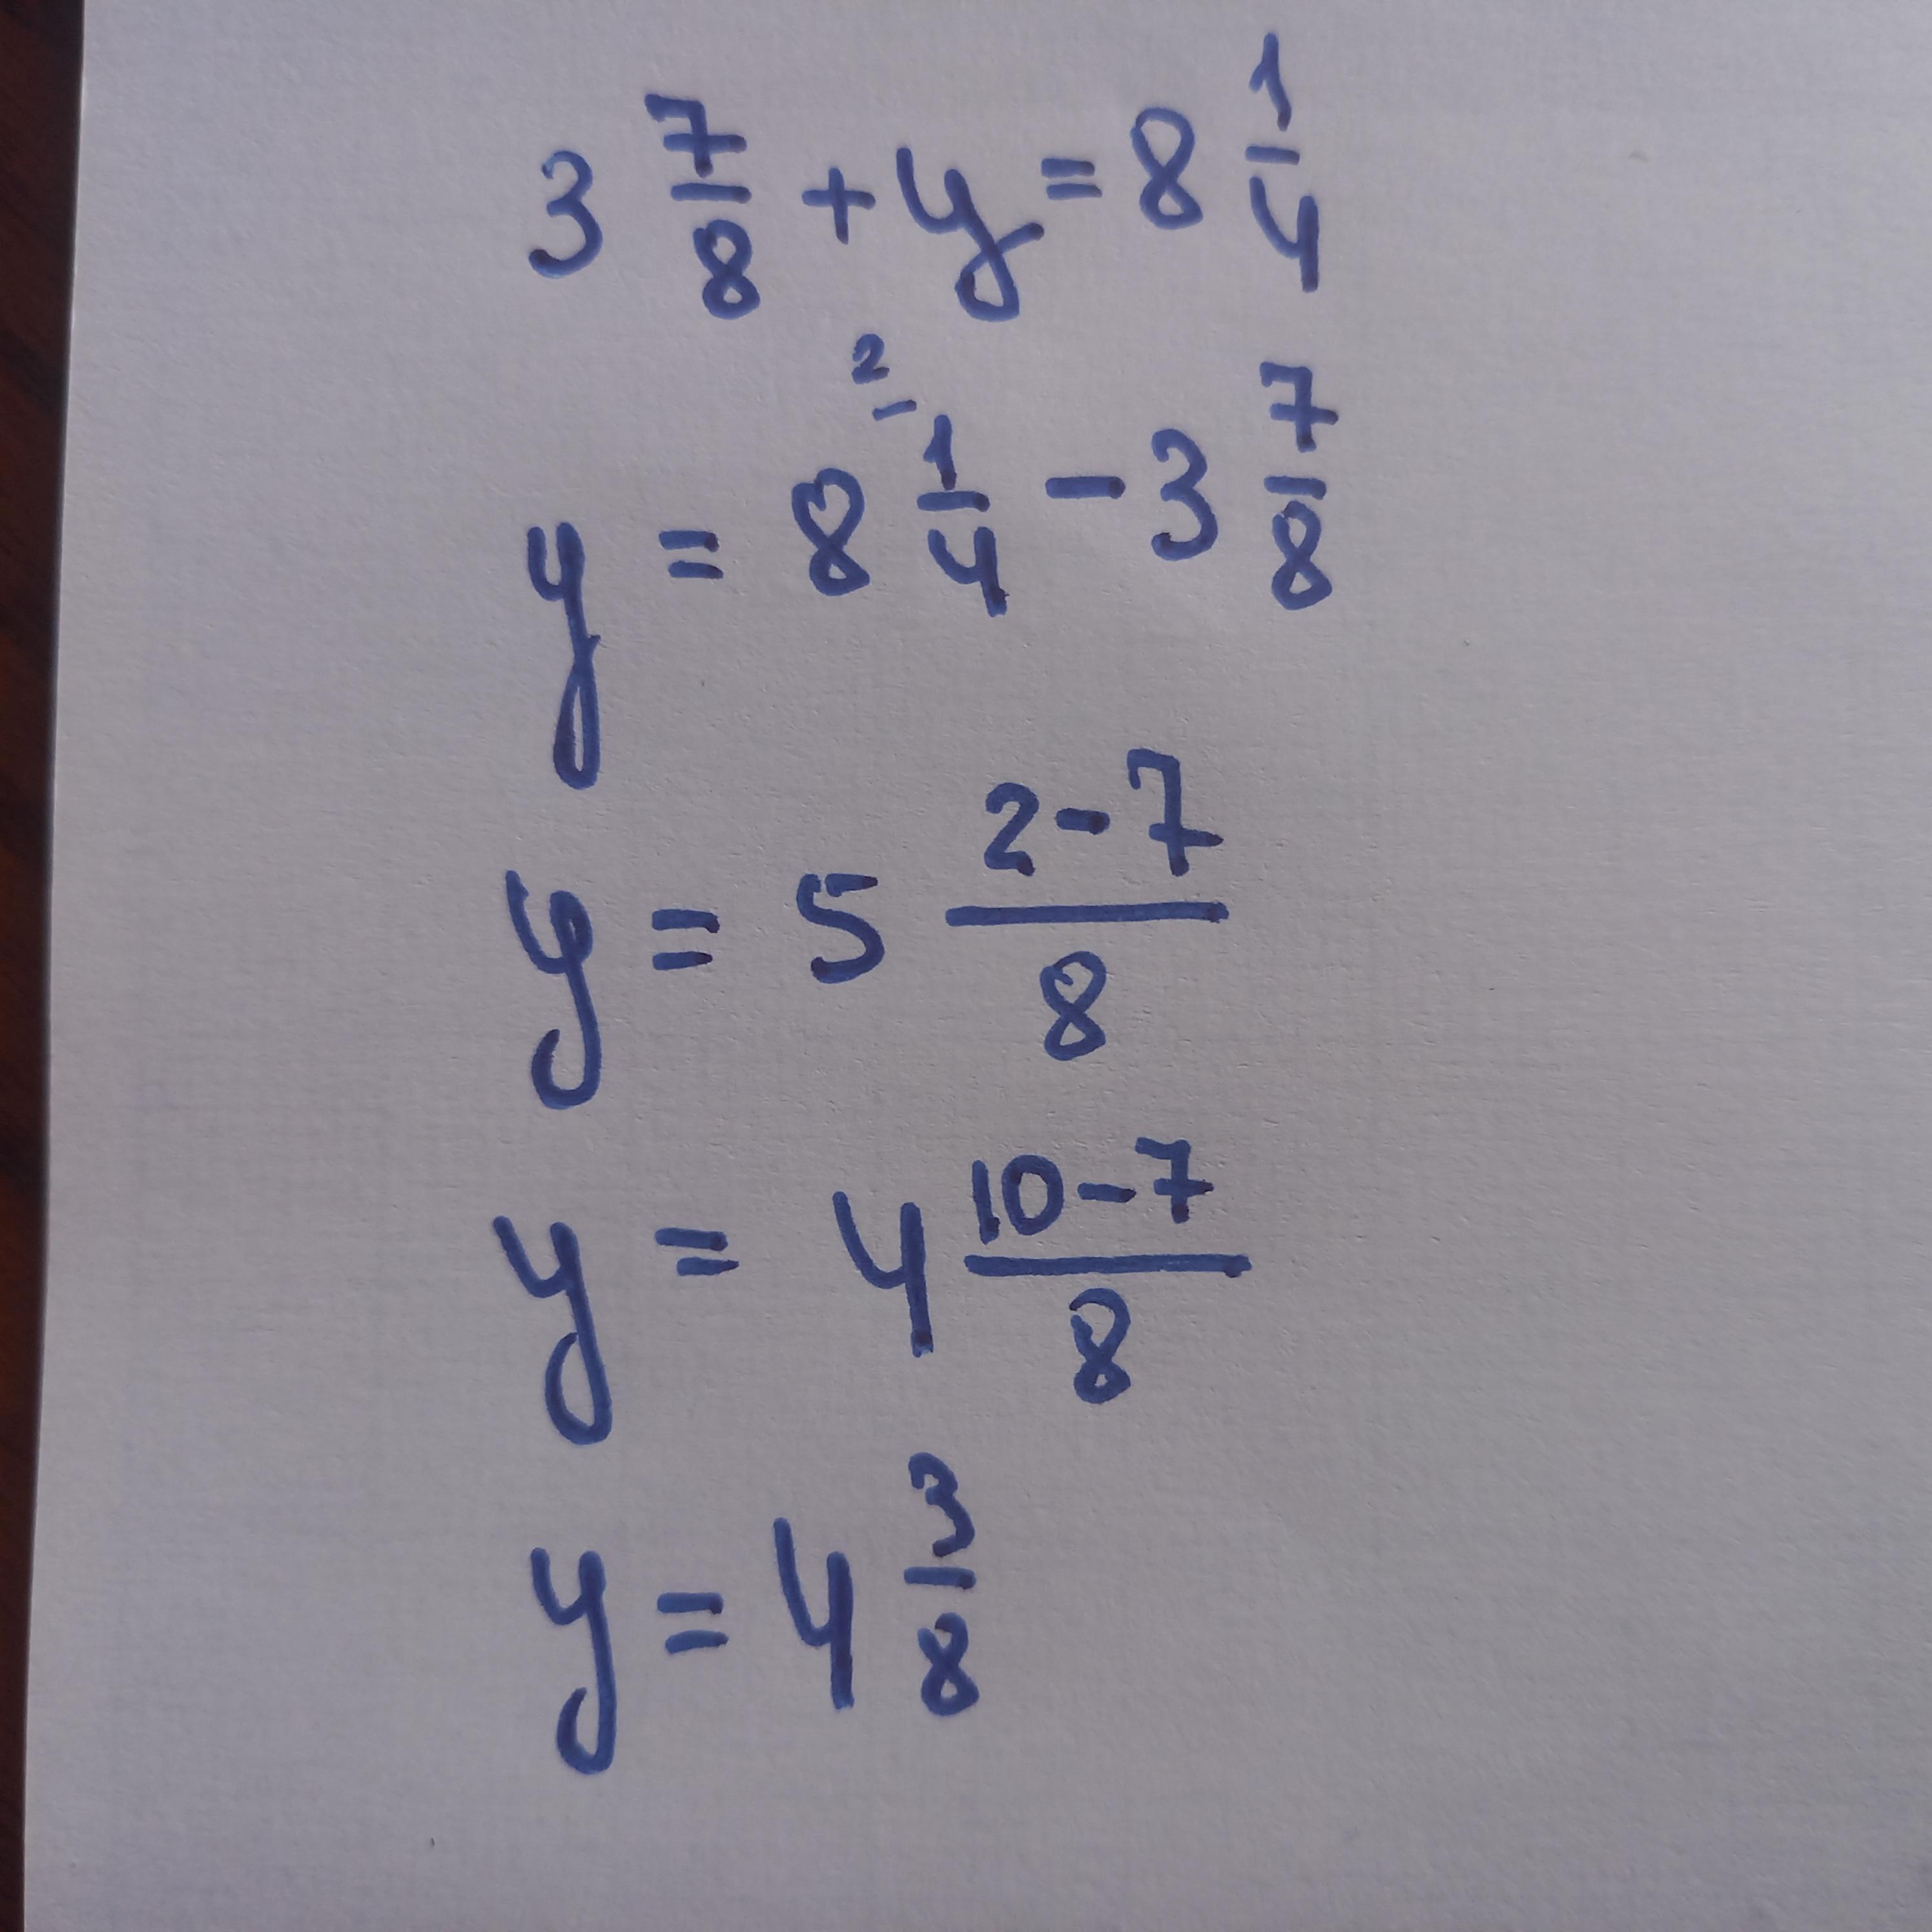 3 7/8 + y = 8 1/4
2
y = 8 1/4 - 3 7/8
y = 5 2-7/8
y = 4 10-7/8
y = 4 3/8